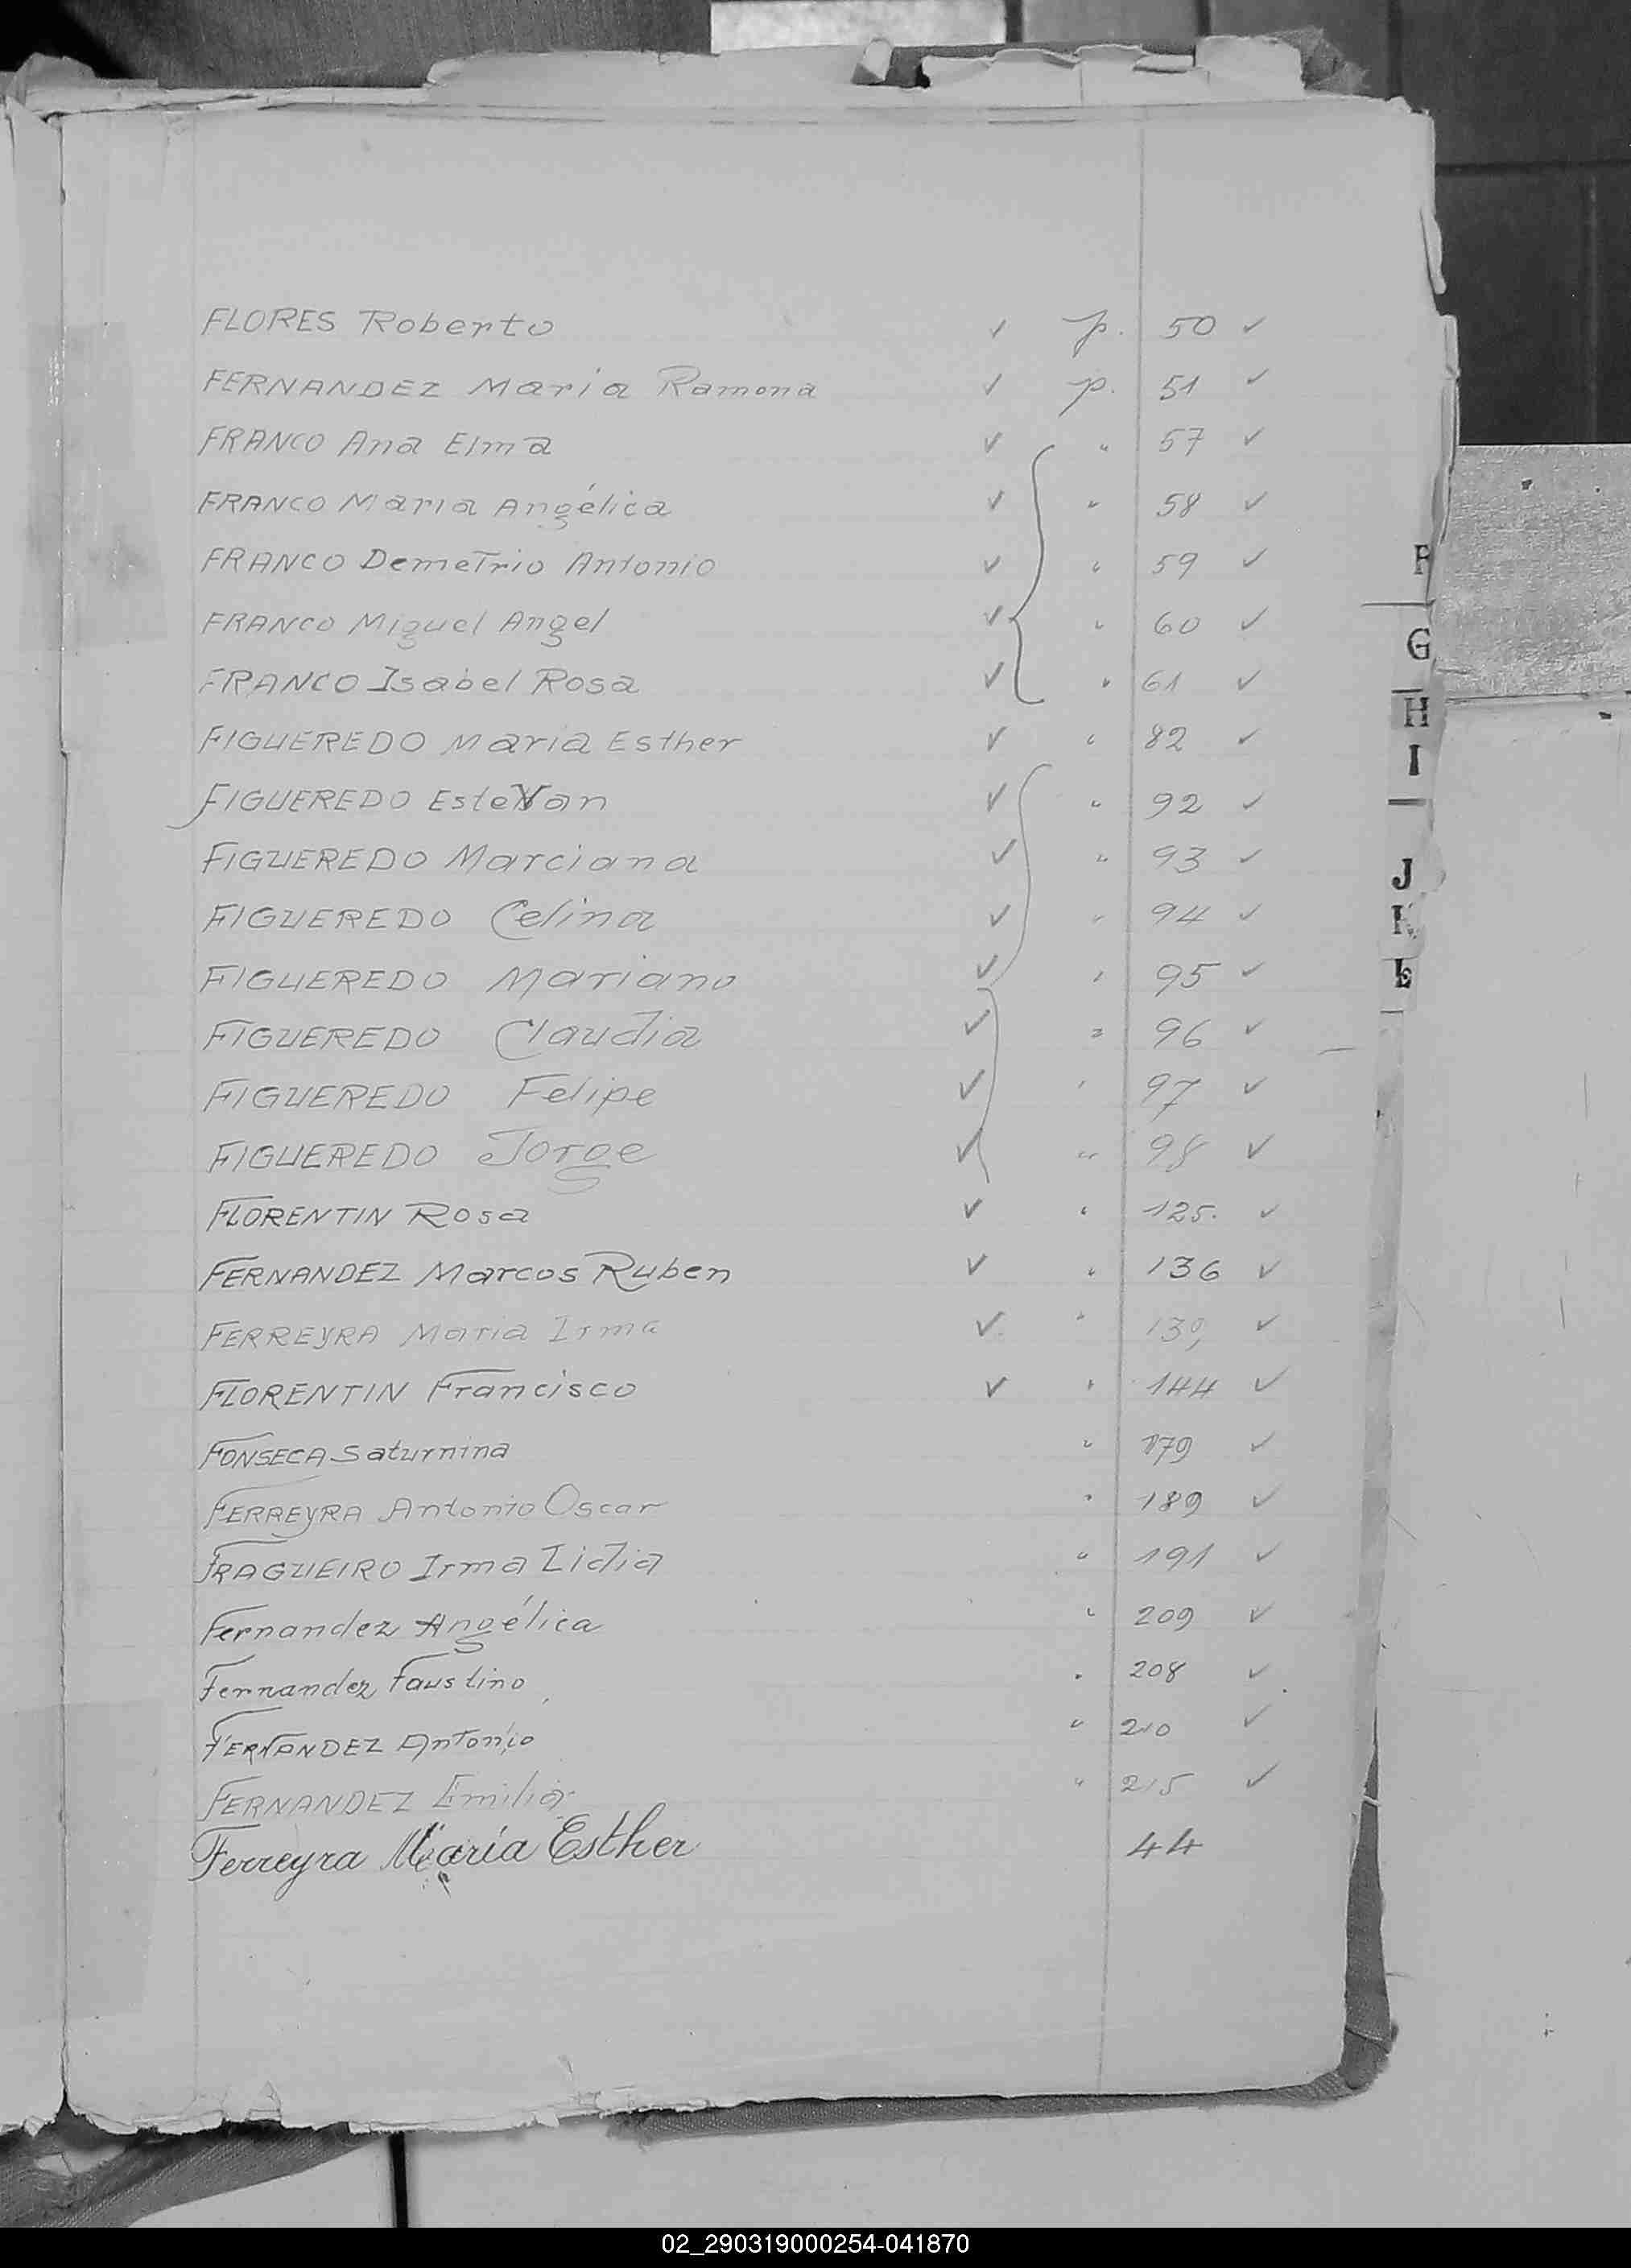 FLORES Roberto ✓ p. 50 ✓
FERNANDEZ Maria Ramona ✓ p. 51 ✓
FRANCO Ana Elma ✓ " 57 ✓
FRANCO Maria Angélica ✓ " 58 ✓
FRANCO Demetrio Antonio ✓ " 59 ✓
FRANCO Miguel Angel ✓ " 60 ✓
FRANCO Isabel Rosa ✓ " 61 ✓
FIGUEREDO Maria Esther ✓ " 82 ✓
FIGUEREDO EsteVan ✓ " 92 ✓
FIGUEREDO Marciana ✓ " 93 ✓
FIGUEREDO Celina ✓ " 94 ✓
FIGUEREDO Mariano ✓ " 95 ✓
FIGUEREDO Claudia ✓ " 96 ✓
FIGUEREDO Felipe ✓ " 97 ✓
FIGUEREDO Jorge ✓ " 98 ✓
FLORENTIN Rosa ✓ " 125. ✓
FERNANDEZ Marcos Ruben ✓ " 136 ✓
FERREYRA Maria Irma ✓ " 139 ✓
FLORENTIN Francisco ✓ " 144 ✓
FONSECA Saturnina " 179 ✓
FERREYRA Antonio Oscar " 189 ✓
FRAGUEIRO Irma Lidia " 191 ✓
Fernandez Angélica " 209 ✓
Fernandez Faustino " 208 ✓
FERNANDEZ Antonio " 210 ✓
FERNANDEZ Emilia " 215 ✓
Ferreyra María Esther 44
F
G
H
I
J
K
L
02_290319000254-041870